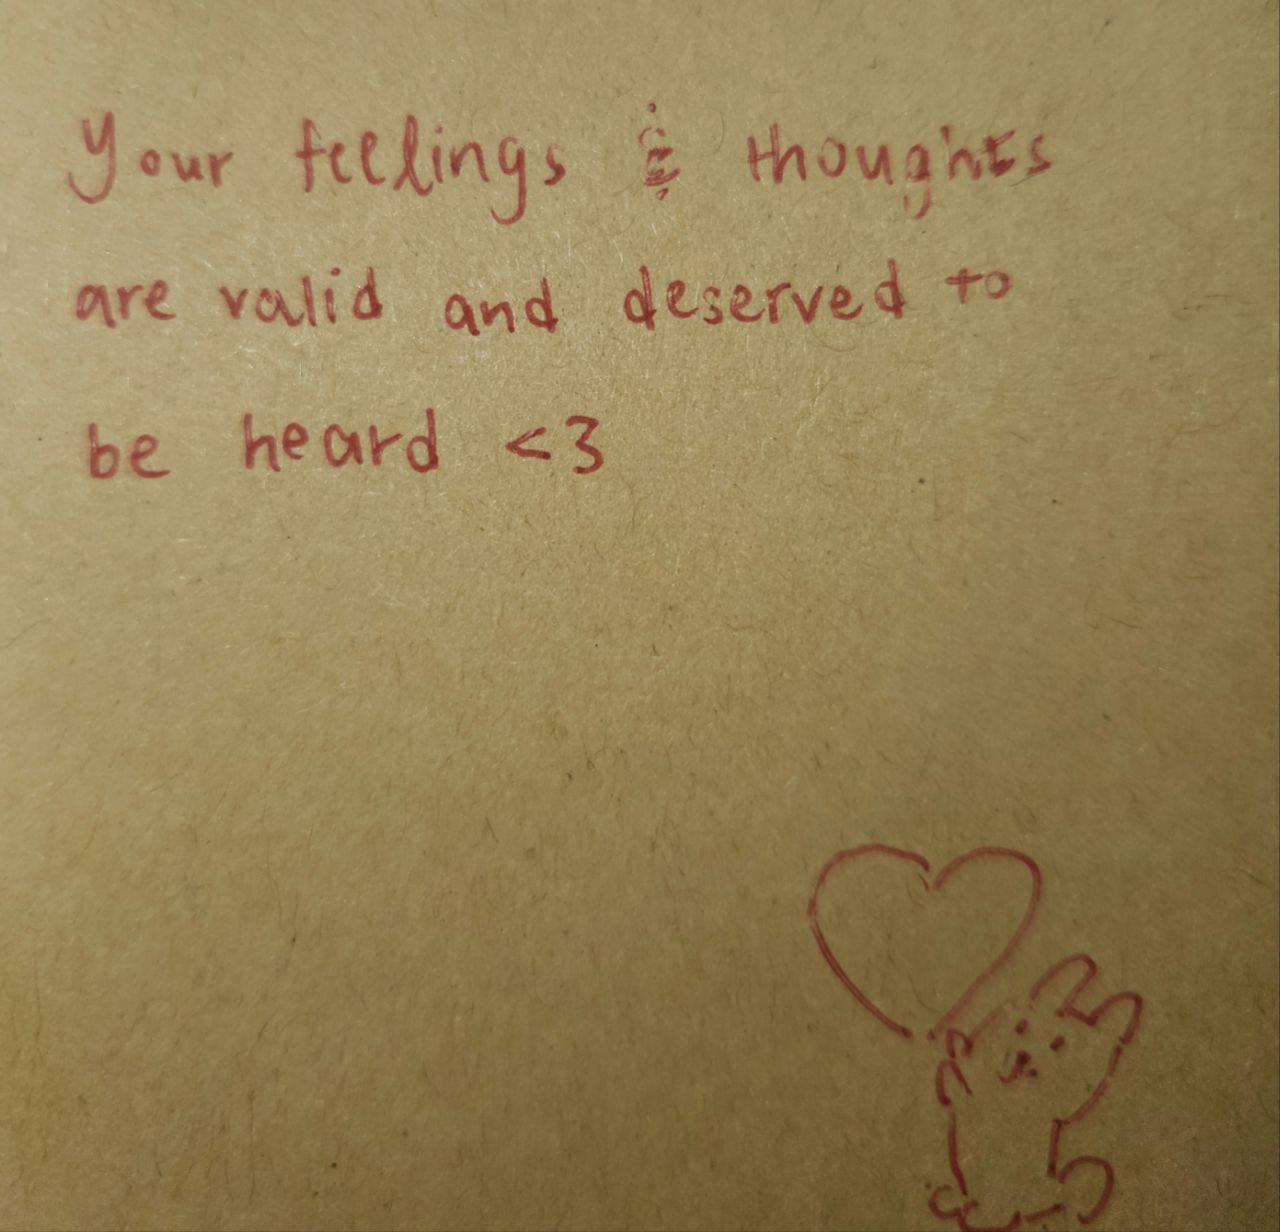 Your feelings & thoughts
are valid and deserved to
be heard <3